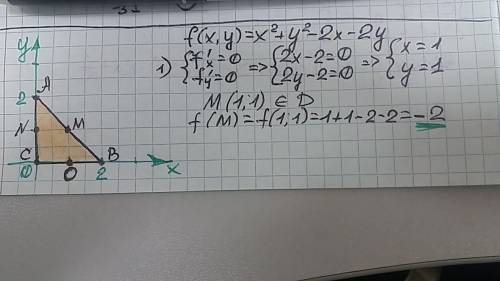 -31
f(x,y)=x²+y²-2x-2y
1) {f'x=0 {f'y=0 => {2x-2=0 {2y-2=0 => {x=1 {y=1
M(1;1) ∈ D
f(M)=f(1;1)=1+1-2-2=-2
y
A
2
N
M
C
B
0
O
2
x